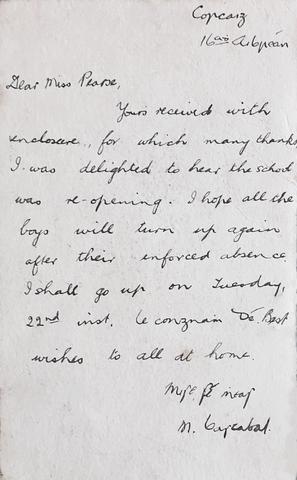 Corcaig
16adh Aibreán
Dear Miss Pearse,
Yours received with
enclosure, for which many thanks
I was delighted to hear the school
was re-opening. I hope all the
boys will turn up again
after their enforced absence.
I shall go up on Tuesday,
22nd inst. le congnam Dé. Best
wishes to all at home.
Mise fé meas
M.